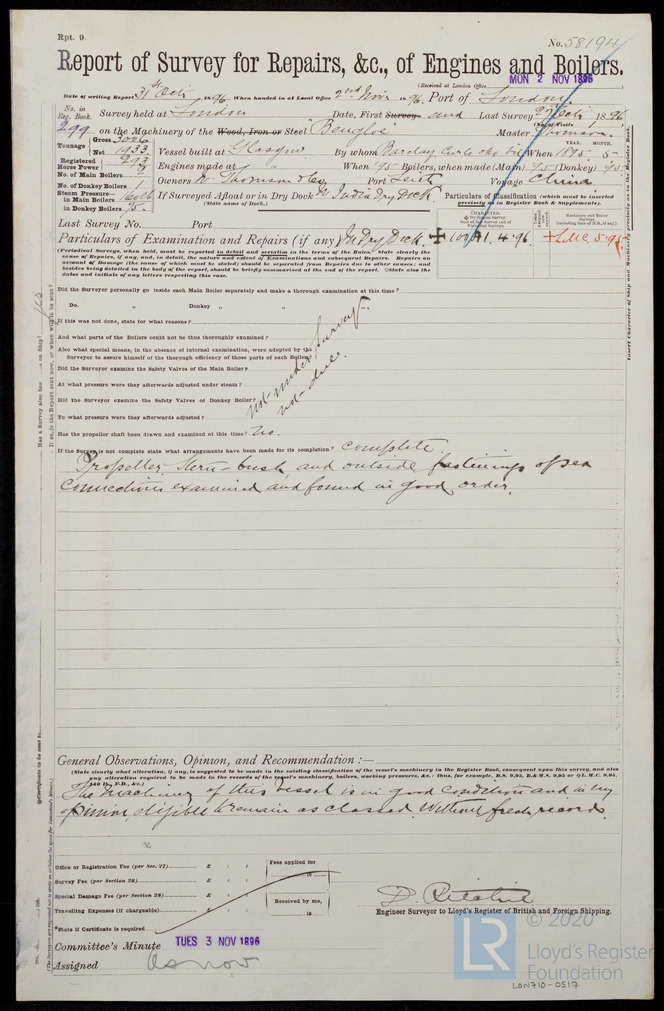 Rpt. 9.
No. 58194
Report of Survey for Repairs, &c., of Engines and Boilers.
(Received at London Office
MON 2 NOV 1896
Date of writing Report 31st Oct 1896 When handed in at Local Office 2nd Nov 1896 Port of London
No. in Reg. Book.
299
Survey held at London Date, First Survey and Last Survey Oct 1896
(No. of Visits 1
on the Machinery of the Wood, Iron or Steel Bengloe Master Thomson
Tonnage Gross 3006
Net 1933
Vessel built at Glasgow By whom Barclay Curle & Co Ltd When 1895 5
YEAR. MONTH.
Registered Horse Power 293
Engines made at When 95 Boilers, when made (Main) 95 (Donkey) 95
No. of Main Boilers
Owners W. Thomson & Co Port Leith Voyage China
No. of Donkey Boilers 1
Steam Pressure in Main Boilers 160 lb
in Donkey Boilers 75
If Surveyed Afloat or in Dry Dock W India Dry Dock
(State name of Dock.)
Particulars of Classification (which must be inserted precisely as in Register Book & Supplements).
Last Survey No. Port
Particulars of Examination and Repairs (if any) In Dry Dock
✠100A1 4.96
+LMC 5.95
(Periodical Surveys, when held, must be reported in detail and seriatim in the terms of the Rules. State clearly the cause of Repairs, if any, and, in detail, the nature and extent of Examinations and subsequent Repairs. Repairs on account of Damage (the cause of which must be stated) should be separated from Repairs due to other causes; and besides being detailed in the body of the report, should be briefly summarised at the end of the report. State also the dates and initials of any letters respecting this case.
Did the Surveyor personally go inside each Main Boiler separately and make a thorough examination at this time?
Do. „ Donkey „ „
If this was not done, state for what reasons?
And what parts of the Boilers could not be thoroughly examined?
Also what special means, in the absence of internal examination, were adopted by the
Surveyor to assure himself of the thorough efficiency of those parts of each Boiler?
Did the Surveyor examine the Safety Valves of the Main Boiler?
At what pressure were they afterwards adjusted under steam?
Did the Surveyor examine the Safety Valves of Donkey Boiler?
To what pressure were they afterwards adjusted?
not under Survey
not due.
Has the propeller shaft been drawn and examined at this time? No.
If the Survey is not complete state what arrangements have been made for its completion? complete
Propeller, Stern-bush and outside fastenings of sea
connections examined and found in good order.
General Observations, Opinion, and Recommendation:—
(State clearly what alteration, if any, is suggested to be made in the existing classification of the vessel's machinery in the Register Book, consequent upon this survey, and also
any alteration required to be made in the records of the vessel's machinery, boilers, working pressures, &c.: thus, for example, B.S. 9,95, B.&M.S. 9,95 or L.M.C. 9,95,
The machinery of this vessel is in good condition and in my
opinion eligible to remain as classed. Without fresh records.
Office or Registration Fee (per Sec. 27) £ : :
Survey Fee (per Section 28) £ : :
Special Damage Fee (per Section 28) £ : :
Travelling Expenses (if chargeable) £ : :
Fees applied for
18
Received by me,
18
*State if Certificate is required
D. Ritchie
Engineer Surveyor to Lloyd's Register of British and Foreign Shipping.
Committee's Minute TUES 3 NOV 1896
Assigned As now
© 2020
LR
Lloyd's Register
Foundation
LON710-0517